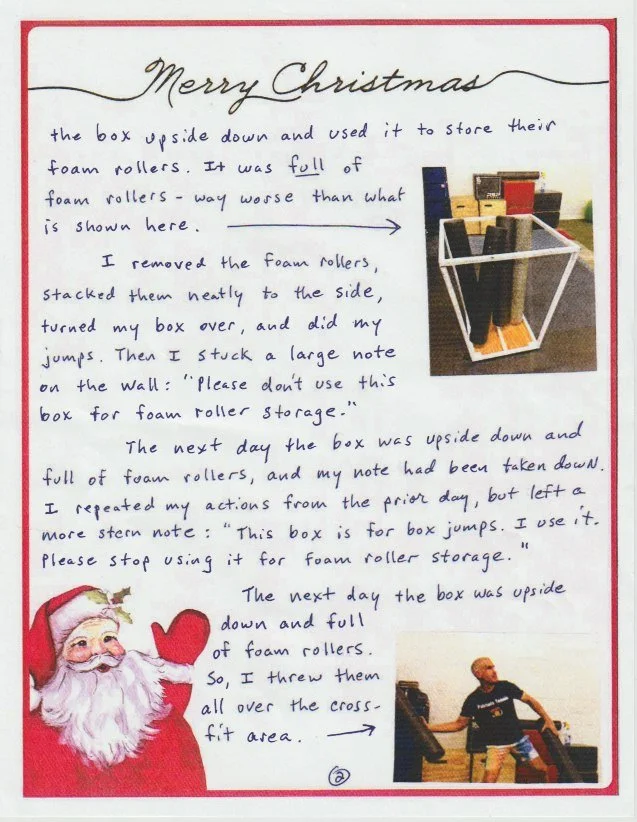 Merry Christmas
the box upside down and used it to store their
foam rollers. It was full of
foam rollers - way worse than what
is shown here.
I removed the foam rollers,
stacked them neatly to the side,
turned my box over, and did my
jumps. Then I stuck a large note
on the wall: "Please don't use this
box for foam roller storage."
The next day the box was upside down and
full of foam rollers, and my note had been taken down.
I repeated my actions from the prior day, but left a
more stern note: "This box is for box jumps. I use it.
Please stop using it for foam roller storage."
The next day the box was upside
down and full
of foam rollers.
So, I threw them
all over the cross-
fit area.
2